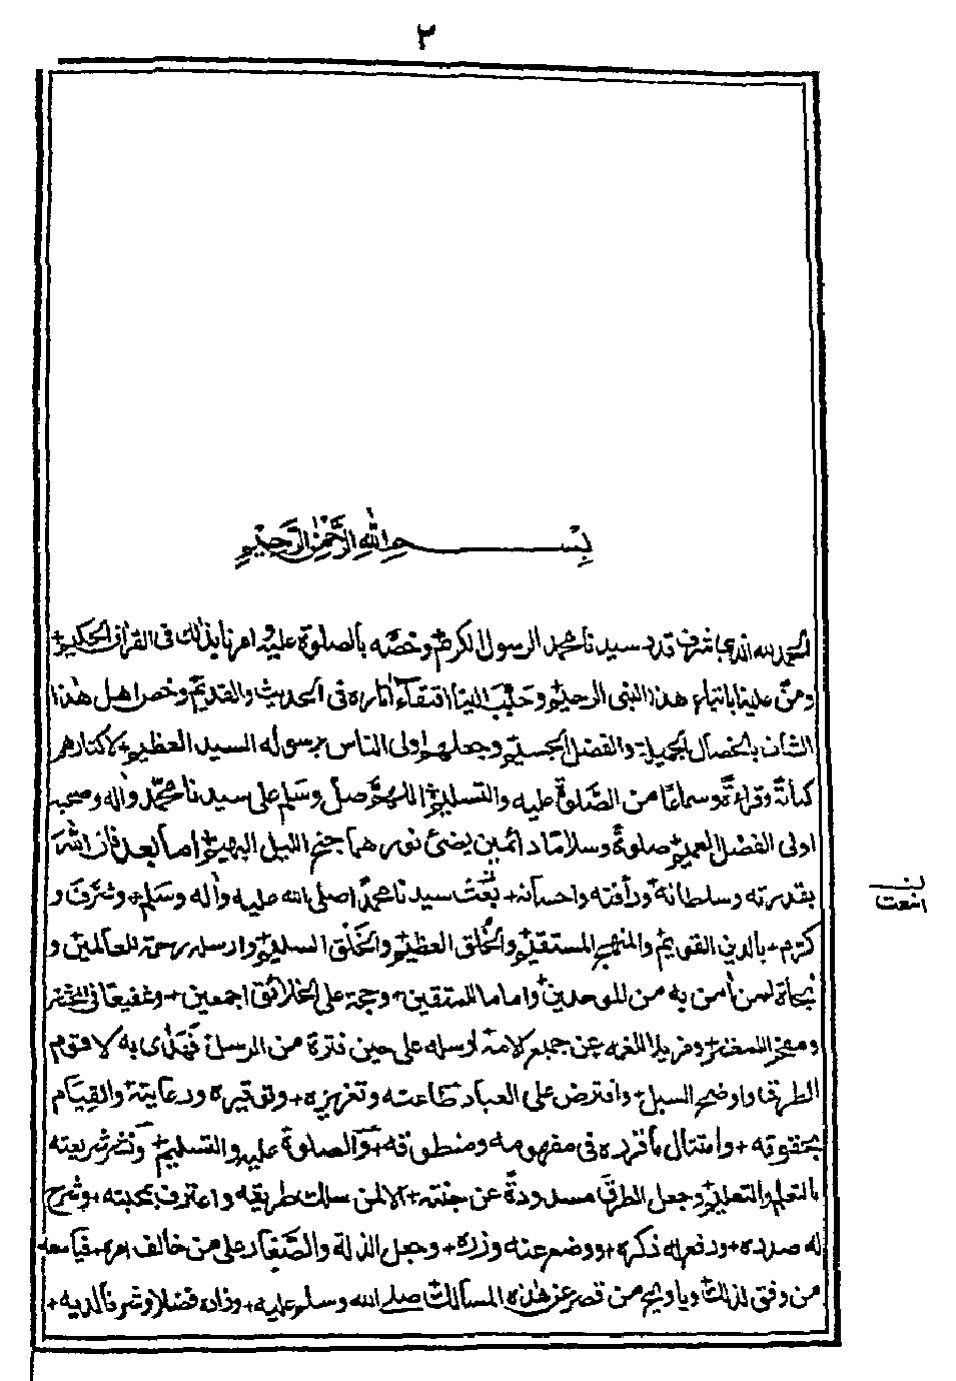 ٢
بِسْــــــمِ اللهِ الرَّحْمٰنِ الرَّحِيْمِ
الحمد لله الذي شرف قدر سيدنا محمد الرسول الكريم وخصّه بالصلوة عليه وامرنا بذلك فى القرآن الحكيم+
ومنّ علينا باتباع هذا النبى الرحيم وحبّب الينا اقتفاء آثاره فى الحديث والقديم وخص اهل هذا
الشان بالخصال الجميلة والفضل الجسيم وجعلهم اولى الناس برسوله السيد العظيم+ لاكثارهم
كتابةً وقراءةً وسماعًا من الصَّلوة عليه والتسليم اللهمَّ صل وسَلم على سيدنا محمّد واٰله وصحبه
اولى الفضل العميم+ صلوةً وسلامًا دائمين يضئ نورهما جنح الليل البهيم+ اما بعد فان اللهَ
بقدرته وسلطانه ورأفته واحسانه+ بَعَثَ سيدنا محمدًا صلى الله عليه واٰله وسَلم+ وشرَّفَ و
كرم+ بالدين القويم والمنهج المستقيم والخُلق العظيم والخَلْق السليم وارسله رحمة للعالمين و
نجاة لمن اٰمن به من الموحدين واماما للمتقين+ وحجة على الخلائق اجمعين+ وشفيعا فى المحشر
ومفخر المعشر+ ومزيلا للغمه عن جميع الامة+ ارسله على حين فترة من الرسل فَهَدٰى به لاقوم
الطرق واوضح السبل+ وافترض على العباد طاعته وتعزيزه+ وتوقيره ورعايته والقِيَام
بحقوقه+ وامتثال ما قرره فى مفهومه ومنطوقه+ وَالصلوة عليه والتسليم+ وَنشر شريعته
بالتعلم والتعليم وجعل الطرقَ مسدودةً عن جنته+ الا لمن سلك طريقه واعترف بمحبته+ وشرح
له صدره+ ورفع له ذكره+ ووضع عنه وزره+ وجعل الذلة والصَّغار على من خالف امره+ فيا سعد
من وفق لذلك+ ويا ويح من قصر عن هٰذه المسالك صلى الله وسلم عليه+ وزاده فضلا وشرفا لديه+
انبعث